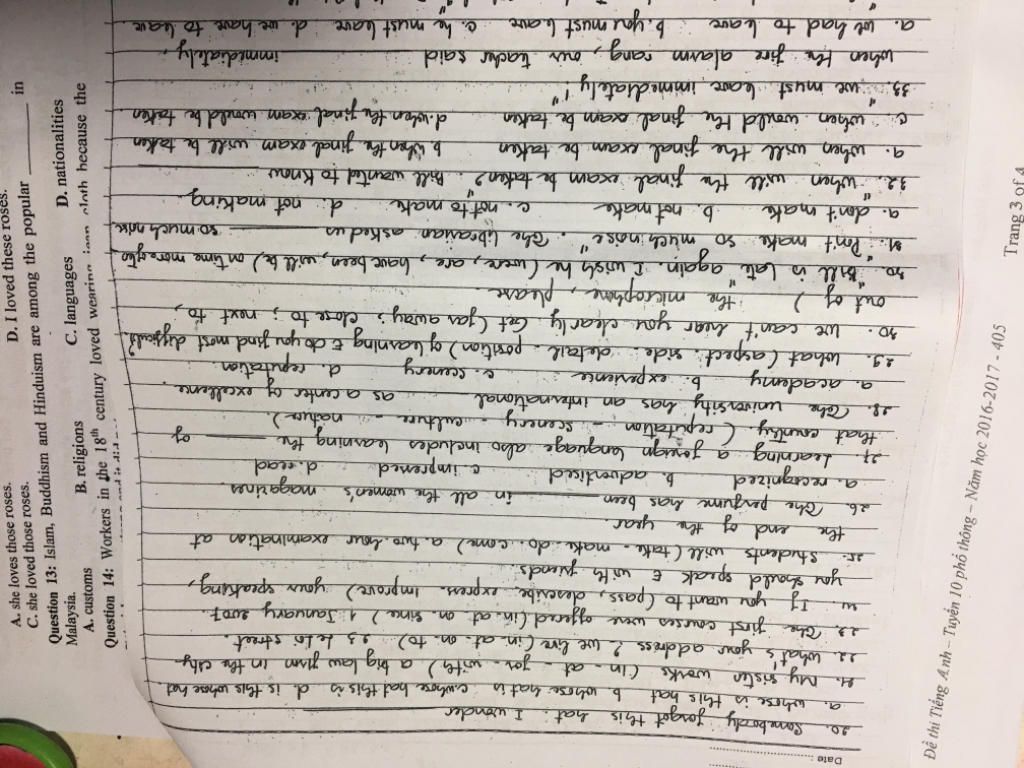 A. she loves those roses.
D. I loved these roses.
C. she loved those roses.
Question 13: Islam, Buddhism and Hinduism are among the popular ______ in
Malaysia.
A. customs B. religions C. languages D. nationalities
Question 14: Workers in the 18th century loved wearing jean cloth because the
Date :
20. Somebody forgot this hat. I wonder ______
a. whose is this hat b whose hat is c. whose hat this is d is this whose hat
21. My sister works (in - at - for - with) a big law firm in the city
22. what's your address? we live (in - at - on - to) 23 Le Loi street.
23. The first courses were offered (in - at - on - since) 1 January 2007.
24. If you want to (pass, describe, express, improve) your speaking,
you should speak E with friends.
25. Students will (take - make - do - come) a two-hour examination at
the end of the year.
26 The perfume has been ______ in all the women's magazines
a. recognized b. advertised c. impressed d. read
27. Learning a foreign language also includes learning the ______ of
that country. (reputation - scenery - culture - nature)
28. The university has an international ______ as a center of excellence.
a. academy b. experience c. scenery d. reputation
29. What (aspect - side - detail - position) of learning E do you find most difficult?
30. We can't hear you clearly. Get (far away; close to; next to,
out of) the microphone, please.
30. Bill is late again. I wish he (were, are, have been, will be) on time more often
31. "Don't make so much noise". The librarian asked us ______ so much noise
a. don't make b. not make c. not to make d. not making.
32. "When will the final exam be taken?" Bill wanted to know
a. when will the final exam be taken b when the final exam will be taken
c. when would the final exam be taken d. when the final exam would be taken
33. "we must leave immediately!"
when the fire alarm rang, our teacher said immediately,
a. we had to leave b. you must leave c. he must leave d. we have to leave
Đề thi Tiếng Anh – Tuyển 10 phổ thông – Năm học 2016-2017 - 405
Trang 3 of 4